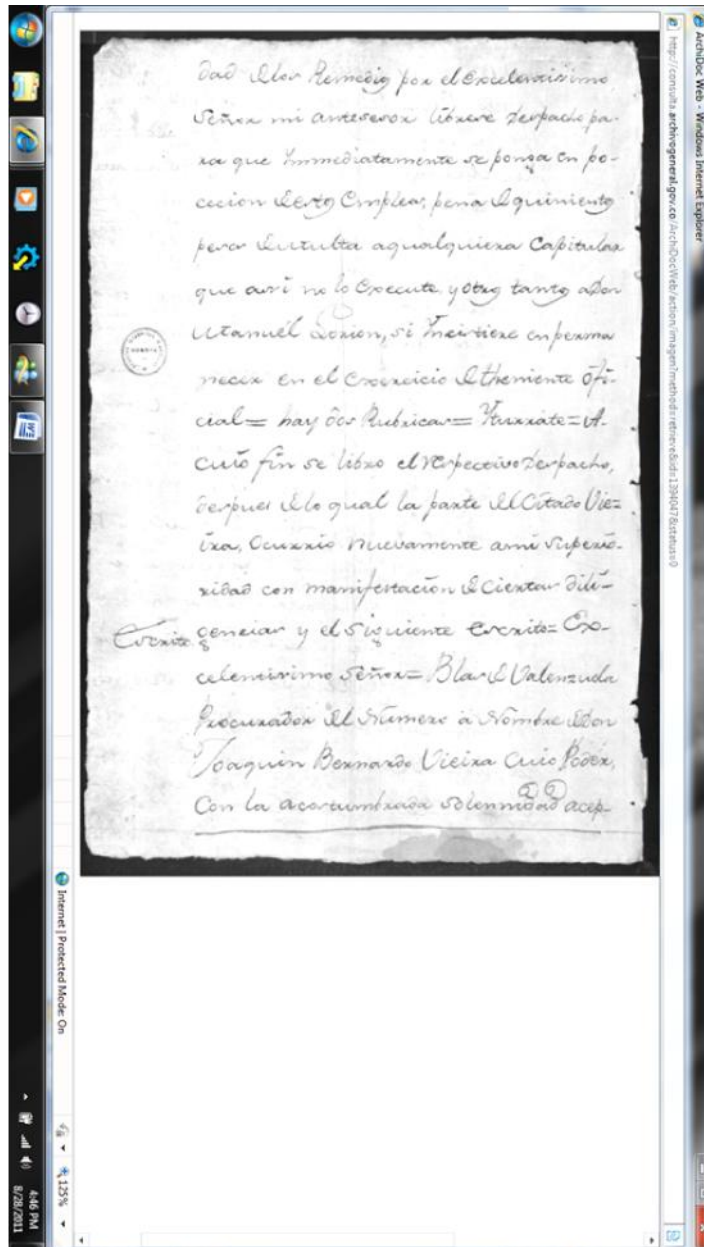 ArchiDoc Web - Windows Internet Explorer
http://consulta.archivogeneral.gov.co/ArchiDocWeb/action/imagen?method=retrieve&id=1394047&status=0
dad de los Remedios por el excelentissimo
Señor mi antesesor librese despacho pa-
ra que Immediatamente se ponga en po-
cecion de estos Empleos, pena de quinientos
pesos de Multa a qualquiera Capitular
que assi no lo execute y otros tantos a Don
Manuél Lorion, si Incistiere en perma
necer en el exercicio de theniente ofi-
cial = hay dos Rubricas = Yturrate = A.
cuio fin se libro el respectivo despacho,
despues de lo qual la parte del Citado Vie=
ira, Ocurrio nuevamente a mi superio-
ridad con manifestacion de ciertas dili-
Escrito
gencias y el siguiente escrito = Ex-
celentissimo Señor = Blas de Valenzuela
Procurador del Numero a Nombre de Don
Joaquin Bernardo Vieira Cuio Poder,
Con la acostumbrada solemnidad acep-
Internet | Protected Mode: On
125%
4:46 PM
8/28/2011